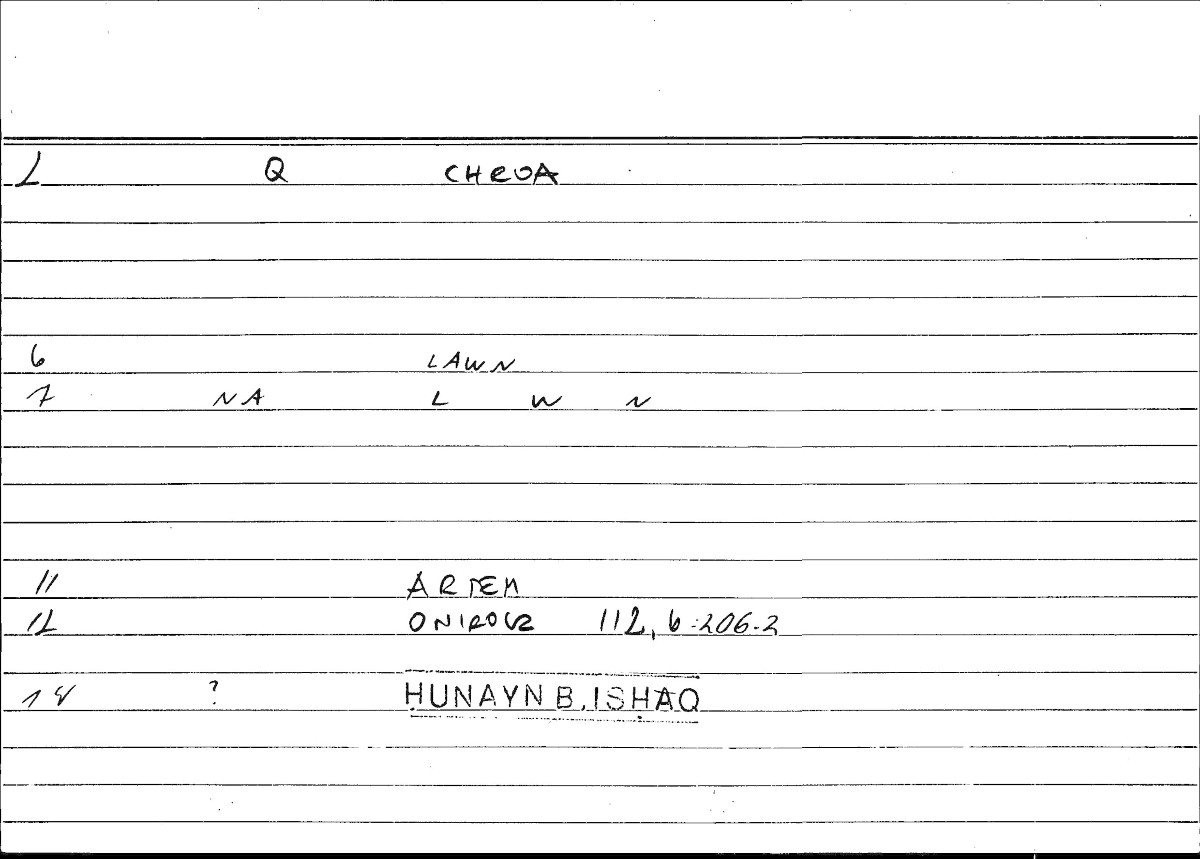 2 Q CHROA
6 LAWN
7 NA L W N
11 ARTEM
12 ONIROCR 112,6-206.2
18 ? HUNAYN B. ISHAQ